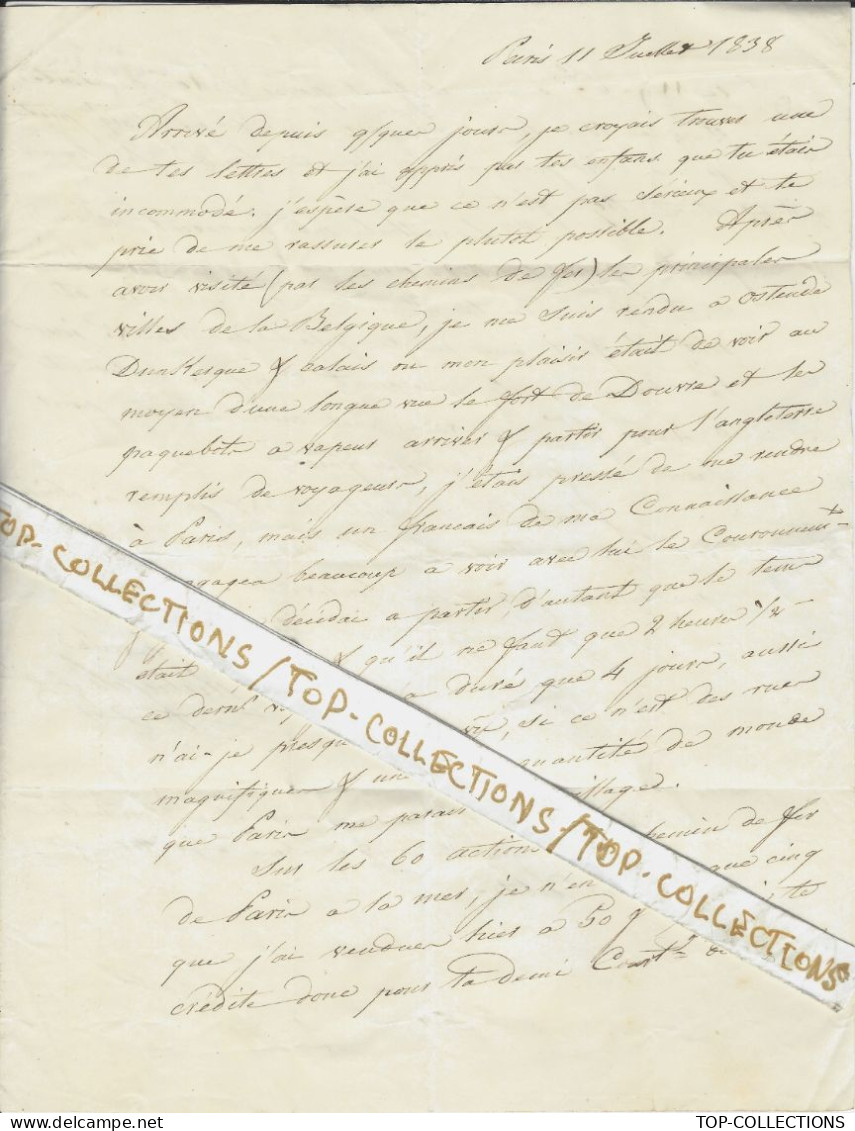 Paris 11 Juillet 1838
Arrivé depuis q/ques jours, je croyais trouver une
de tes lettres et j'ai appris par tes enfans que tu étais
incommodé. j'espère que ce n'est pas sérieux et te
prie de me rassurer le plutot possible. Après
avoir visité (par les chemins de fer) les principales
villes de la Belgique, je me suis rendu a Ostende
Dunkerque & calais ou mon plaisir était de voir au
moyen d'une longue vue le fort de Douvre et les
paquebots a vapeur arriver & partir pour l'angleterre
remplis de voyageurs, j'étais pressé de me rendre
à Paris, mais un francais de ma Connaissance
beaucoup a voir avec lui le Couronnemt
décidai a partir d'autant que le tems
était & qu'il ne faut que 2 heures 1/2
ce dernr a duré que 4 jours, aussi
n'ai-je presque vu, si ce n'est des rues
magnifiques & une quantité de monde
que Paris me parait village.
Sur les 60 actions chemin de fer
de Paris a la mer, je n'en que cinq
que j'ai vendues hier a 50 f te
crédite donc pour ta demi
TOP-COLLECTIONS/TOP-COLLECTIONS/TOP-COLLECTIONS
TOP-COLLECTIONS